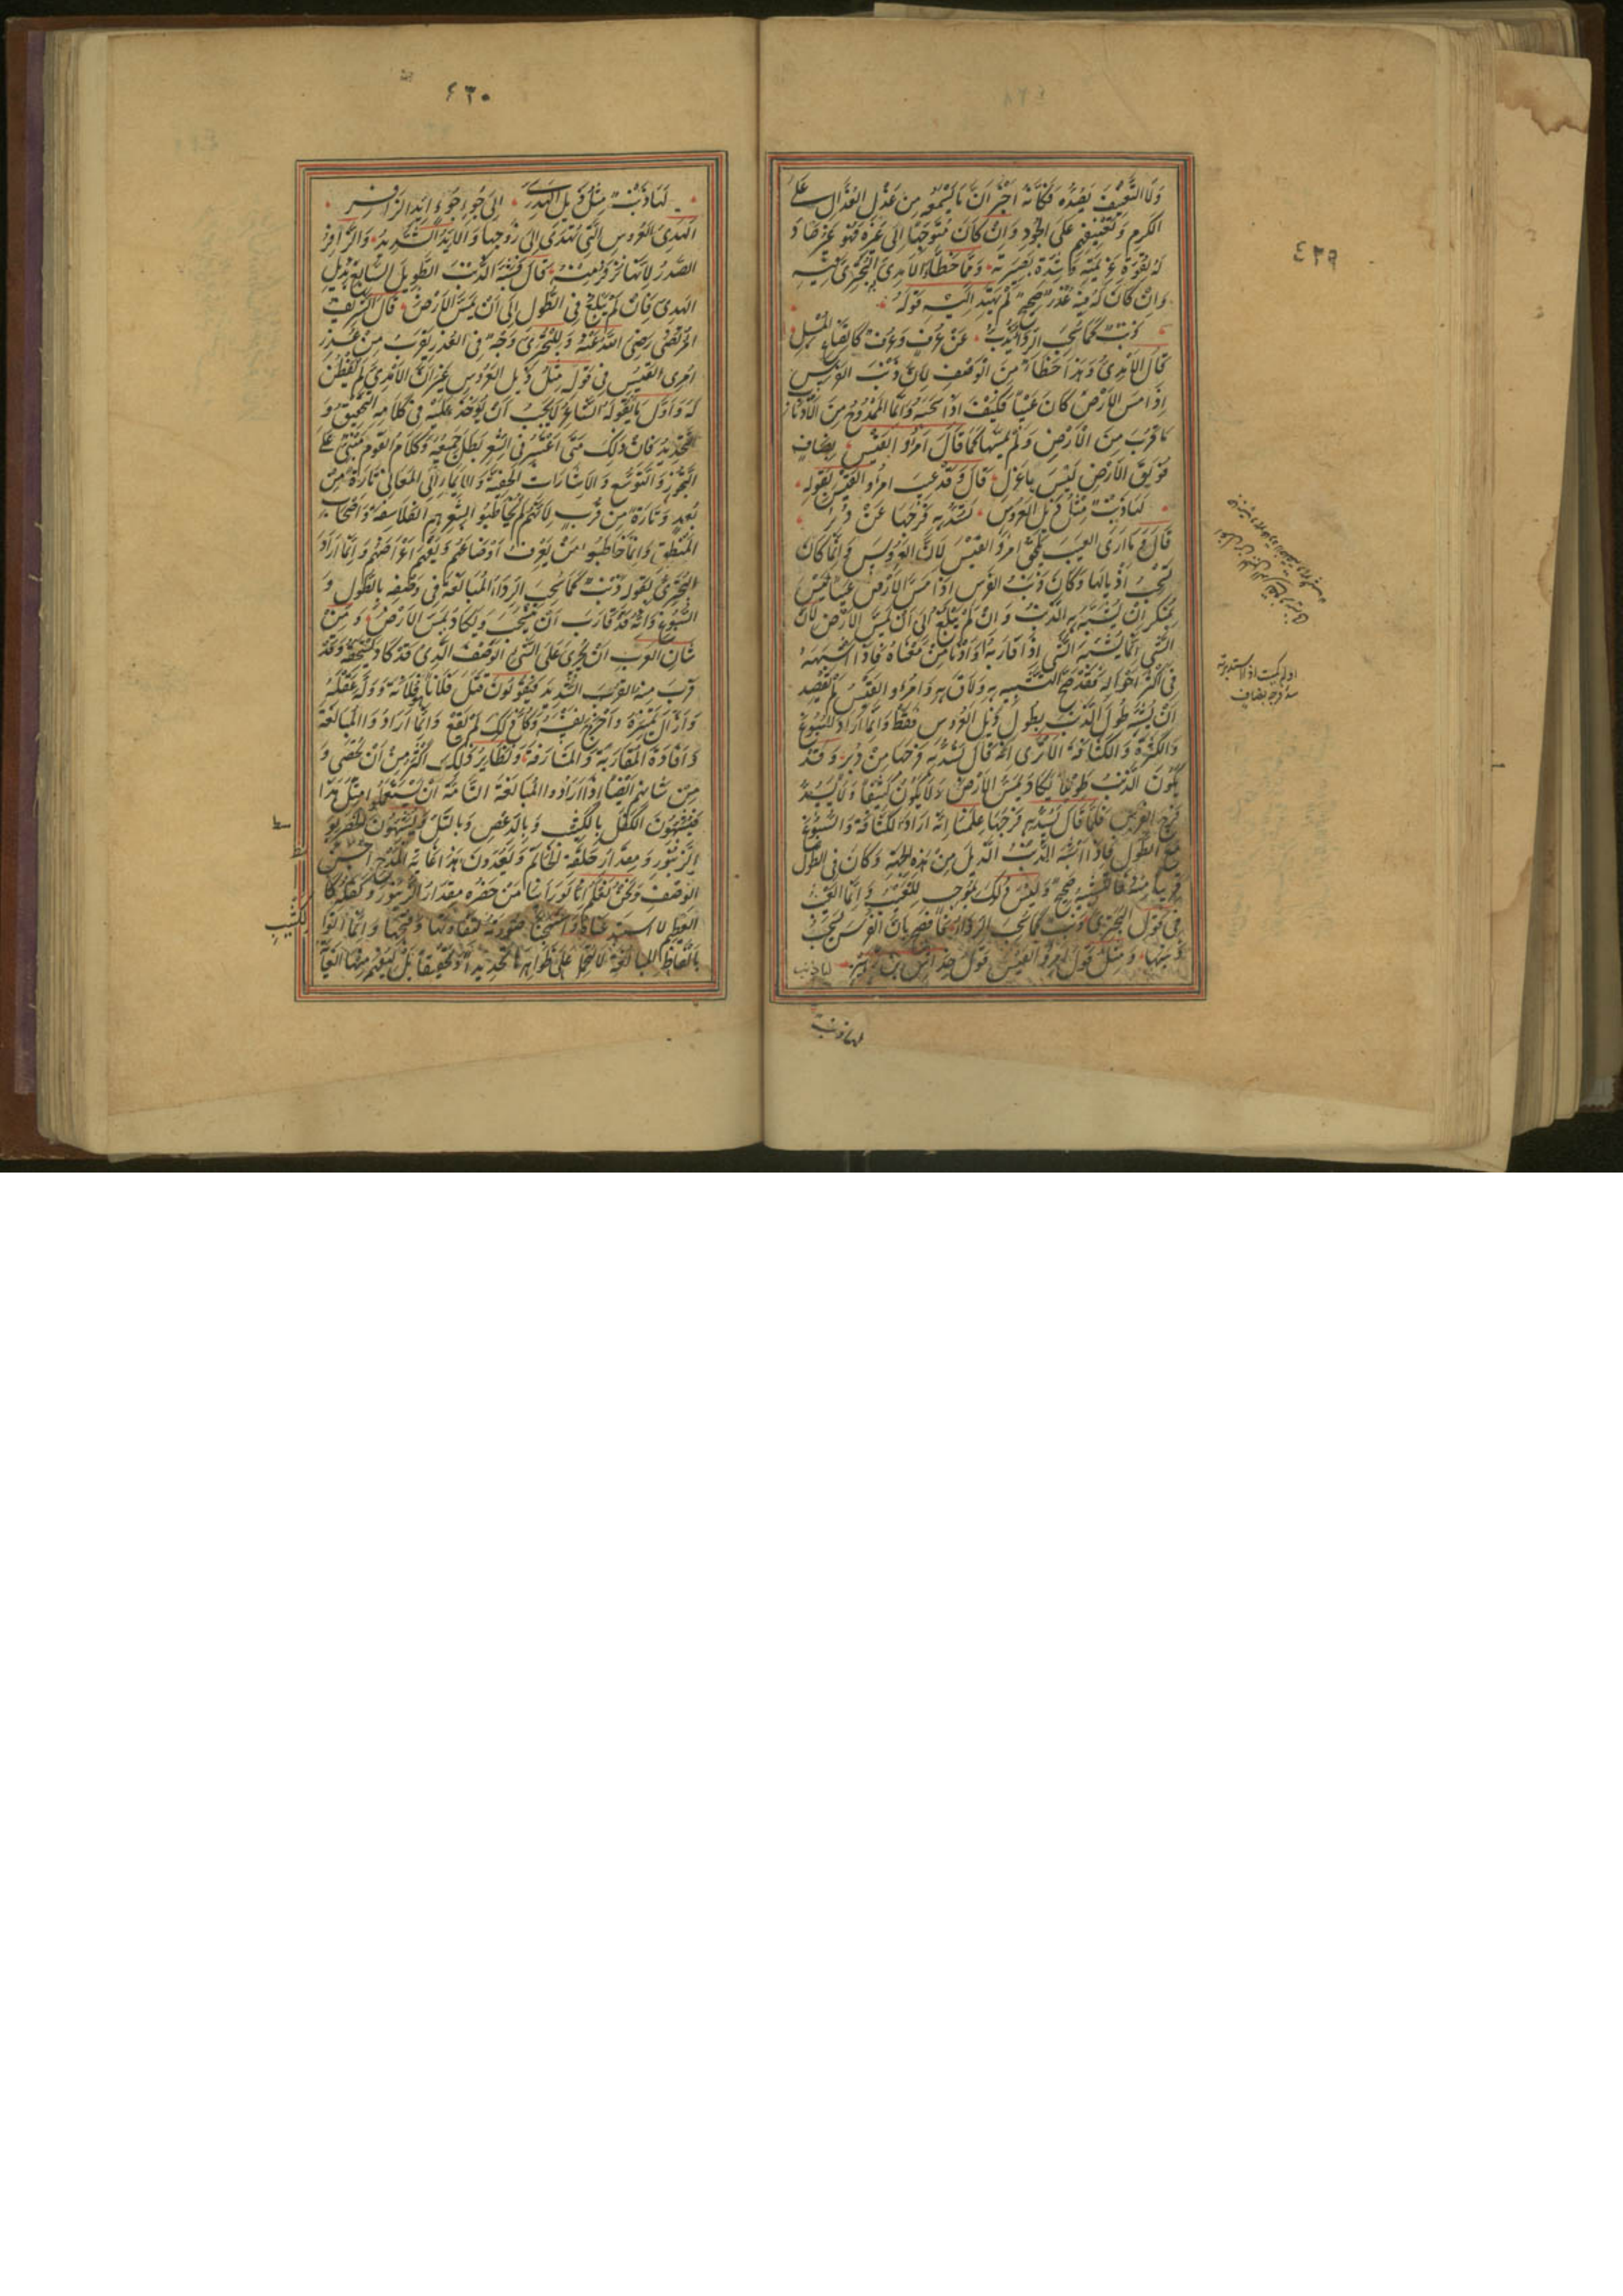 ٤٣٩
ولا التعنيف يصده فكأنه اخبر ان ما يسمعه من عذل العذال على
الكرم وتعنيفهم على الجود وان كان متوجها الى غيره فهو غير صاد
له لقوة عزيمته وشدة بصيرته ومما خطأ الآمدي البحتري فيه
وان كان له فيه عذر صحيح لم يهتد اليه قوله
ذنب كما سحب الرداء يذب عن عرف وعرف كالقناع المسبل
قال الآمدي وهذا خطأ من الوصف لان ذنب الفرس
اذا مس الارض كان عيبا فكيف اذا سحبه وانما الممدوح من الاذناب
ما قرب من الارض ولم يمسها كما قال امرؤ القيس بضاف
فويق الارض ليس باعزل قال وقد عيب امرؤ القيس بقوله
لها ذنب مثل ذيل العروس تسد به فرجها من دبر
قال وما ارى العيب يلحق امرأ القيس لان العروس وان كانت
تسحب اذيالها وكان ذنب الفرس اذا مس الارض عيبا فليس
بمنكر ان يشبه به الذنب وان لم يبلغ الى ان يمس الارض لان
الشي انما يشبه الشي اذا قاربه او دنا من معناه فاذا اشبهه
في اكثر احواله فقد صح التشبيه به ولاق به وامرؤ القيس لم يقصد
ان يشبه طول الذنب بطول ذيل العروس فقط وانما اراد السبوغ
والكثرة والكثافة الا ترى انه قال تسد به فرجها من دبر وقد
يكون الذنب طويلا يكاد يمس الارض ولا يكون كثيفا ولا يسد
فرج الفرس فلما قال تسد به فرجها علمنا انه اراد الكثافة والسبوغ
مع الطول فاذا اشبه الذنب الذيل من هذه الجهة وكان في الطول
قريبا منه فالتشبيه صحيح وليس ذلك بموجب للعيب وانما العيب
في قول البحتري ذنب كما سحب الرداء فافصح بان الفرس يسحب
ذنبه ومثل قول امرؤ القيس قول خداش بن زهير
لها ذنب
او لم كميت اذا استدبرته
سد فرجه بضاف
٤٣٠
لها ذنب مثل ذيل الهدي الى جؤجؤ ايد الزافر
الهدي العروس التي تهدى الى زوجها والايد الشديد والزافر
الصدر لانها تزفر منه قال فشبه الذنب الطويل السابغ بذيل
الهدي وان لم يبلغ في الطول الى ان يمس الارض قال الشريف
المرتضى رضى الله عنه وللبحتري وجه في العذر يقرب من عذر
امرئ القيس في قوله مثل ذيل العروس غير ان الآمدي لم يفطن
له واول ما نقوله ان الشاعر لا يجب ان يؤخذ عليه في كلامه التحقيق و
التحديد فان ذلك متى اعتبر في الشعر بطل جميعه وكلام القوم مبني على
التجوز والتوسع والاشارات الخفية والايماء الى المعاني تارة من
بعد وتارة من قرب لانهم لم يخاطبوا بشعرهم الفلاسفة واصحاب
المنطق وانما خاطبوا من يعرف اوضاعهم ويفهم اغراضهم وانما اراد
البحتري بقوله ذنب كما سحب الرداء المبالغة في وصفه بالطول و
السبوغ وانه قد قارب ان ينسحب ويكاد يمس الارض ومن
شأن العرب ان تجري على الشي الوصف الذي قد كاد يستحقه وقد
قرب منه القرب الشديد فيقولون قتل فلانا فلانة ودله عقله
وازال تمييزه واخرج نفسه وكان ذلك لم يقع وانما ارادوا المبالغة
وافادة المقاربة والمشارفة ونظاير ذلك اكثر من ان تحصى و
من شأنهم ايضا اذا ارادوا المبالغة التامة ان يستعملوا مثل هذا
فيشبهون الكفل بالكثيب وبالدعص وبالتل ويشبهون الخصر بو
الزنبور ومقدار حلقة الخاتم ويعدون هذا غاية المدح واحسن
الوصف ونحن نعلم انا لو راينا من خصره مقدار الزنبور وكفله كا
لكثيب
العظيم لاستبعدناه واستهجنا صورته لنكارتها وقبحها وانما اتوا
بالفاظ المبالغة لا لتحمل على ظواهرها تحديدا وتحقيقا بل ليفهم منها الغاية
لها ذنب